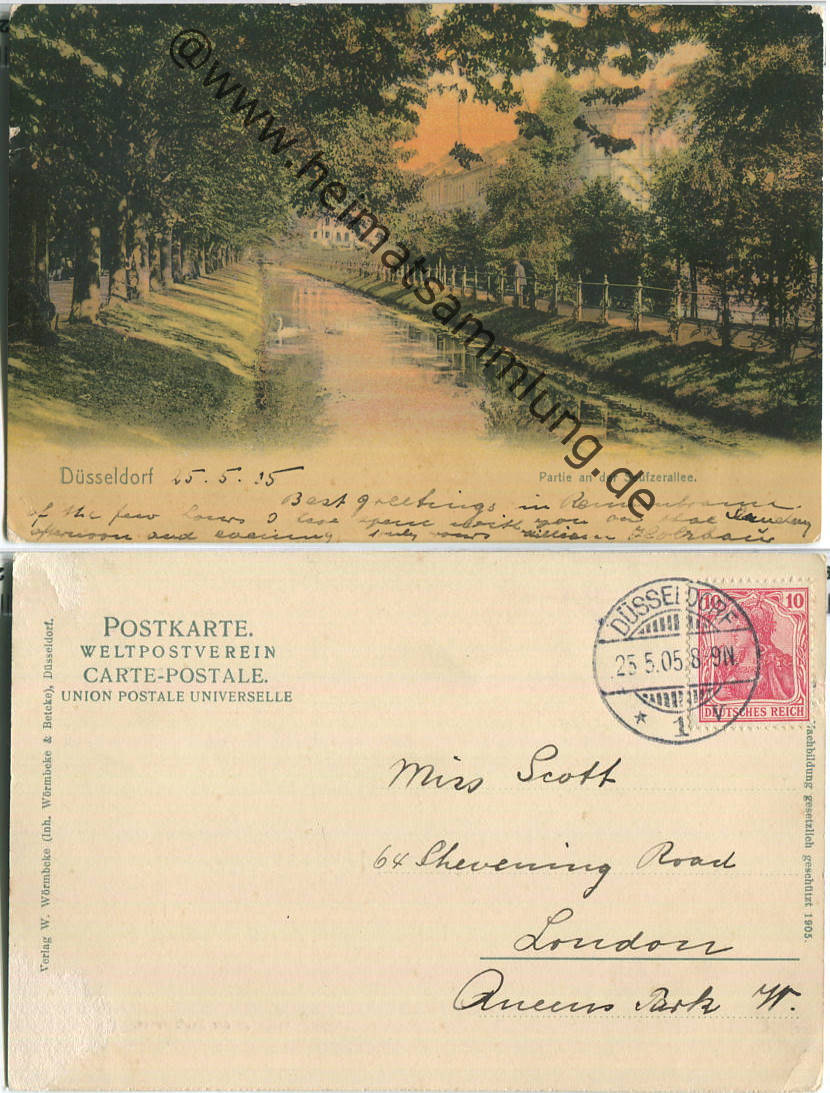 @www.heimatsammlung.de
Düsseldorf 25. 5. 05
Partie an der Seufzerallee.
Best greetings, in Remembrance
of the few hours I have spent with you on that Sunday
afternoon and evening, truly yours William
POSTKARTE.
WELTPOSTVEREIN
CARTE-POSTALE.
UNION POSTALE UNIVERSELLE
Verlag W. Wörmbcke (Inh. Wörmbcke & Betcke), Düsseldorf.
DÜSSELDORF
25.5.05.8-9N.
* 1 v
10 10
DEUTSCHES REICH
Nachbildung gesetzlich geschützt 1905.
Miss Scott
64 Shevening Road
London
Queens Park W.